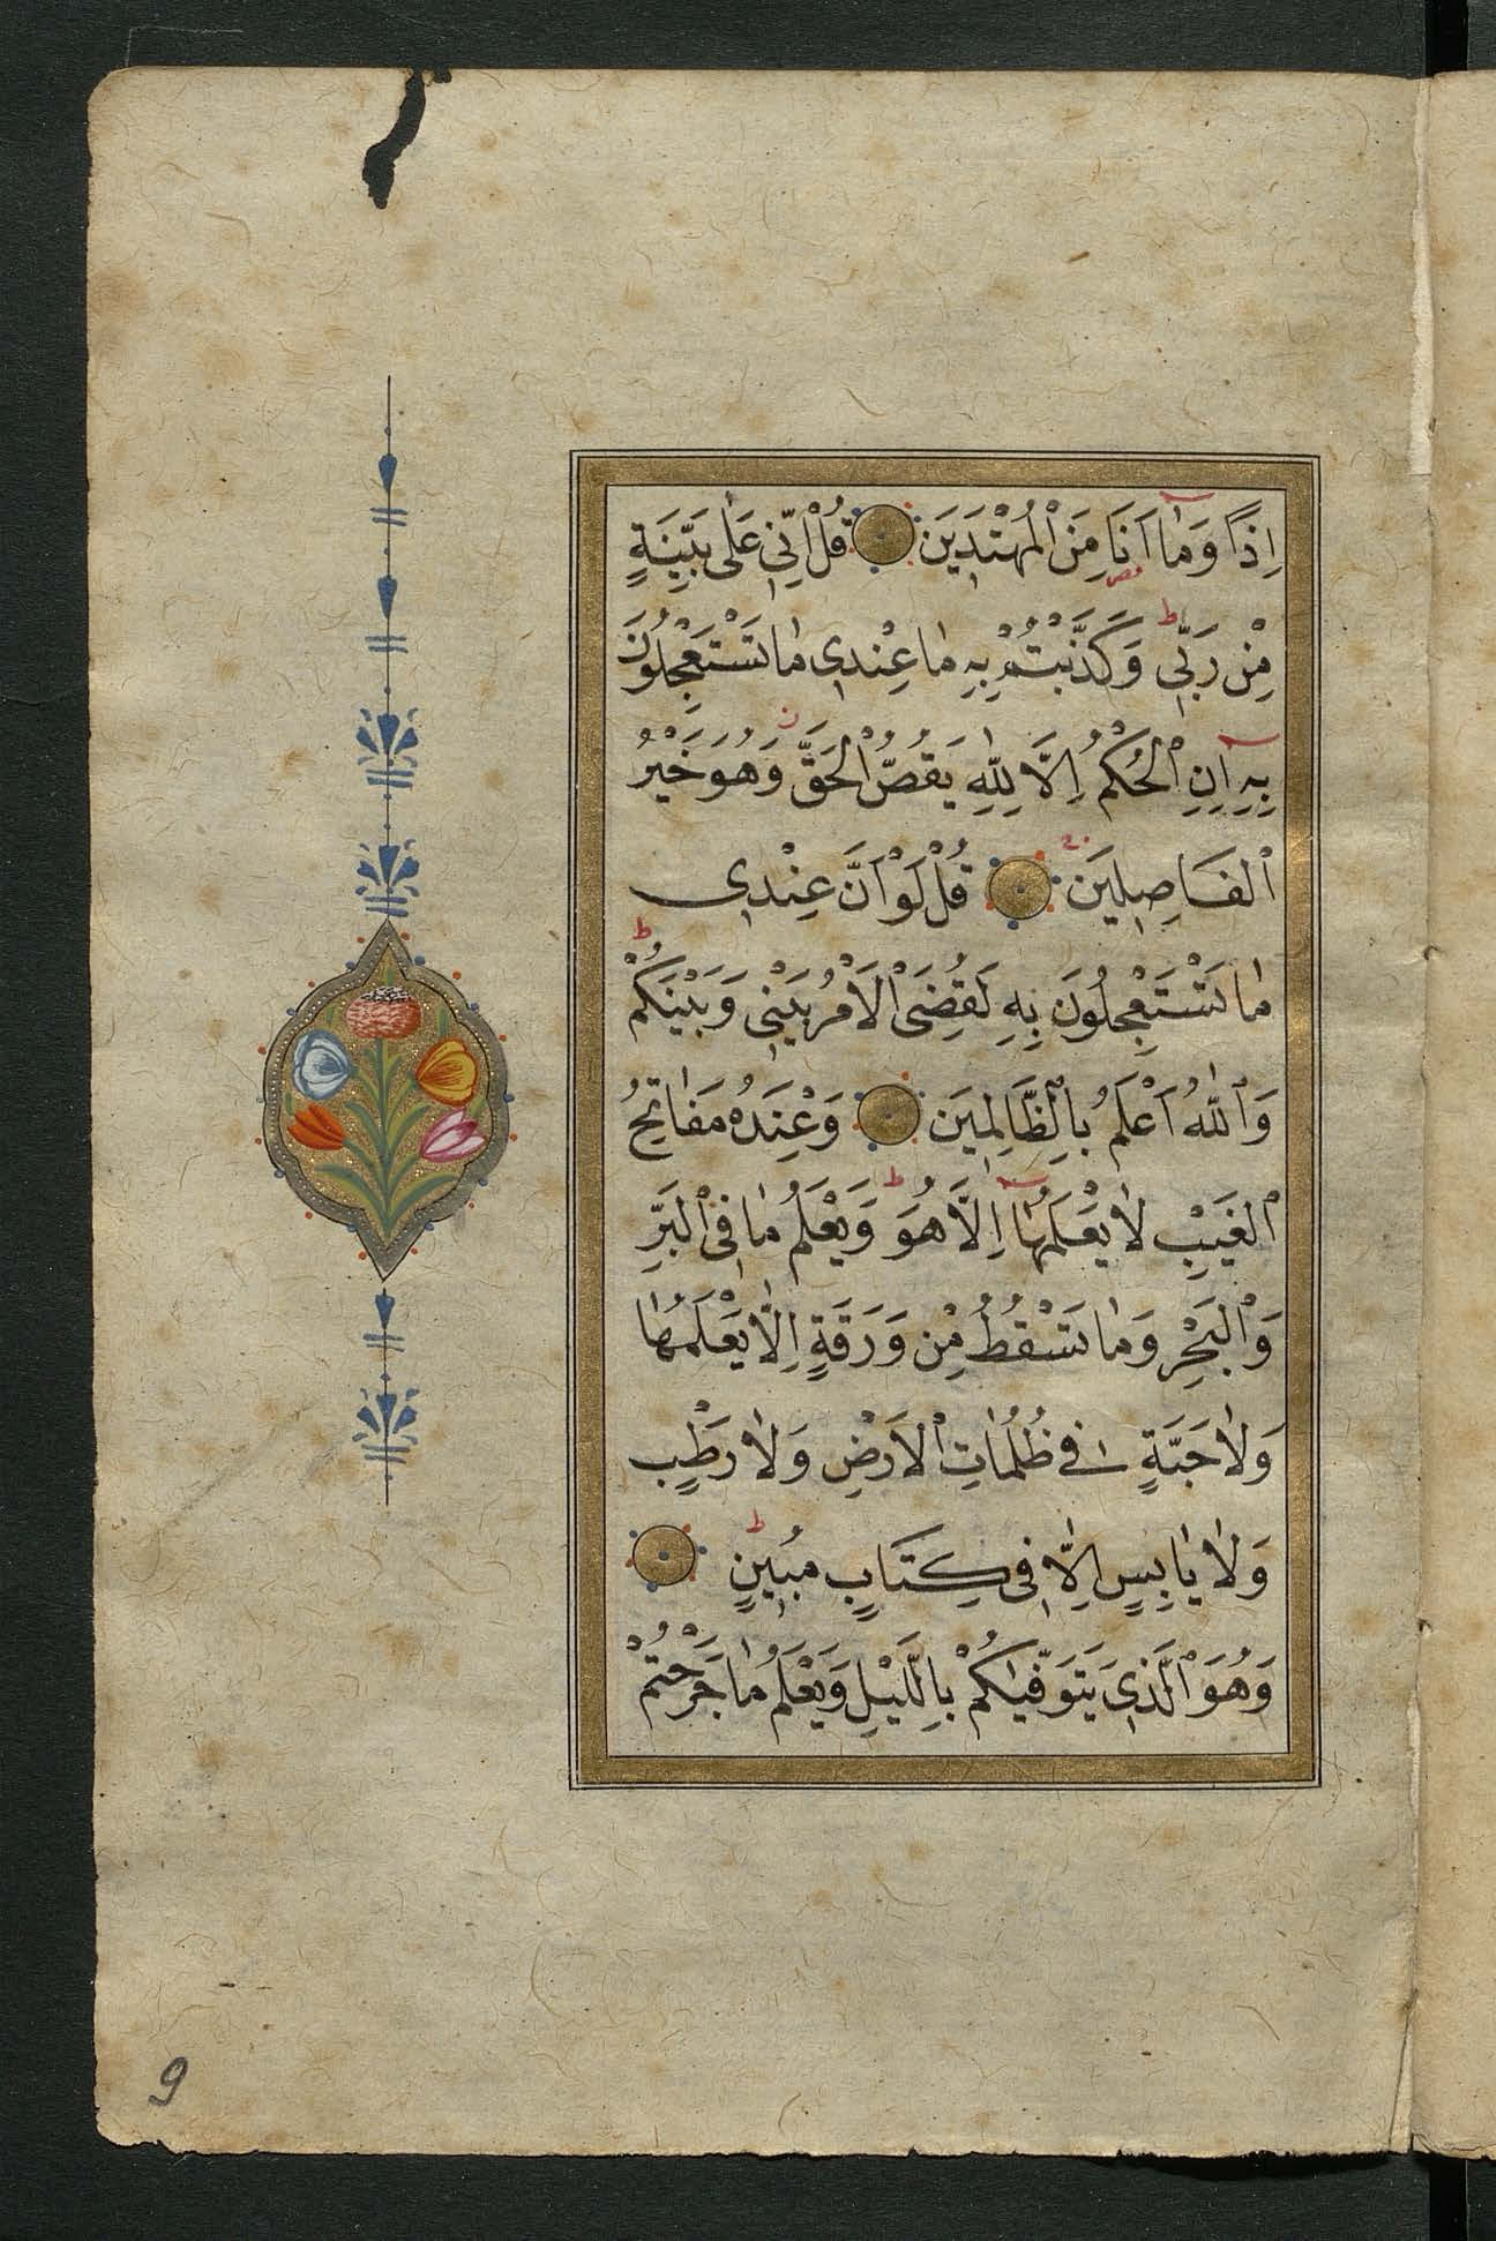 اِذًا وَمٰٓا اَنَا۬ مِنَ ٱلْمُهْتَدِينَ قُلْ اِنِّي عَلٰى بَيِّنَةٍ
مِنْ رَبِّي وَكَذَّبْتُمْ بِهِ مٰا عِنْدِي مٰا تَسْتَعْجِلُونَ
بِهِٓ اِنِ ٱلْحُكْمُ اِلَّا لِلّٰهِ يَقُصُّ ٱلْحَقَّ وَهُوَ خَيْرُ
ٱلْفَاصِلِينَ قُلْ لَوْ اَنَّ عِنْدِي
مٰا تَسْتَعْجِلُونَ بِهِ لَقُضِيَ ٱلْاَمْرُ بَيْنِي وَبَيْنَكُمْ
وَٱللّٰهُ اَعْلَمُ بِالظَّالِمِينَ وَعِنْدَهُ مَفٰاتِحُ
ٱلْغَيْبِ لٰا يَعْلَمُهٰٓا اِلَّا هُوَ وَيَعْلَمُ مٰا فِي ٱلْبَرِّ
وَٱلْبَحْرِ وَمٰا تَسْقُطُ مِنْ وَرَقَةٍ اِلّٰا يَعْلَمُهٰا
وَلٰا حَبَّةٍ فِي ظُلُمٰاتِ ٱلْاَرْضِ وَلٰا رَطْبٍ
وَلٰا يٰابِسٍ اِلّٰا فِي كِتَابٍ مُبِينٍ
وَهُوَ ٱلَّذِي يَتَوَفّٰيكُمْ بِالَّليْلِ وَيَعْلَمُ مٰا جَرَحْتُمْ
9